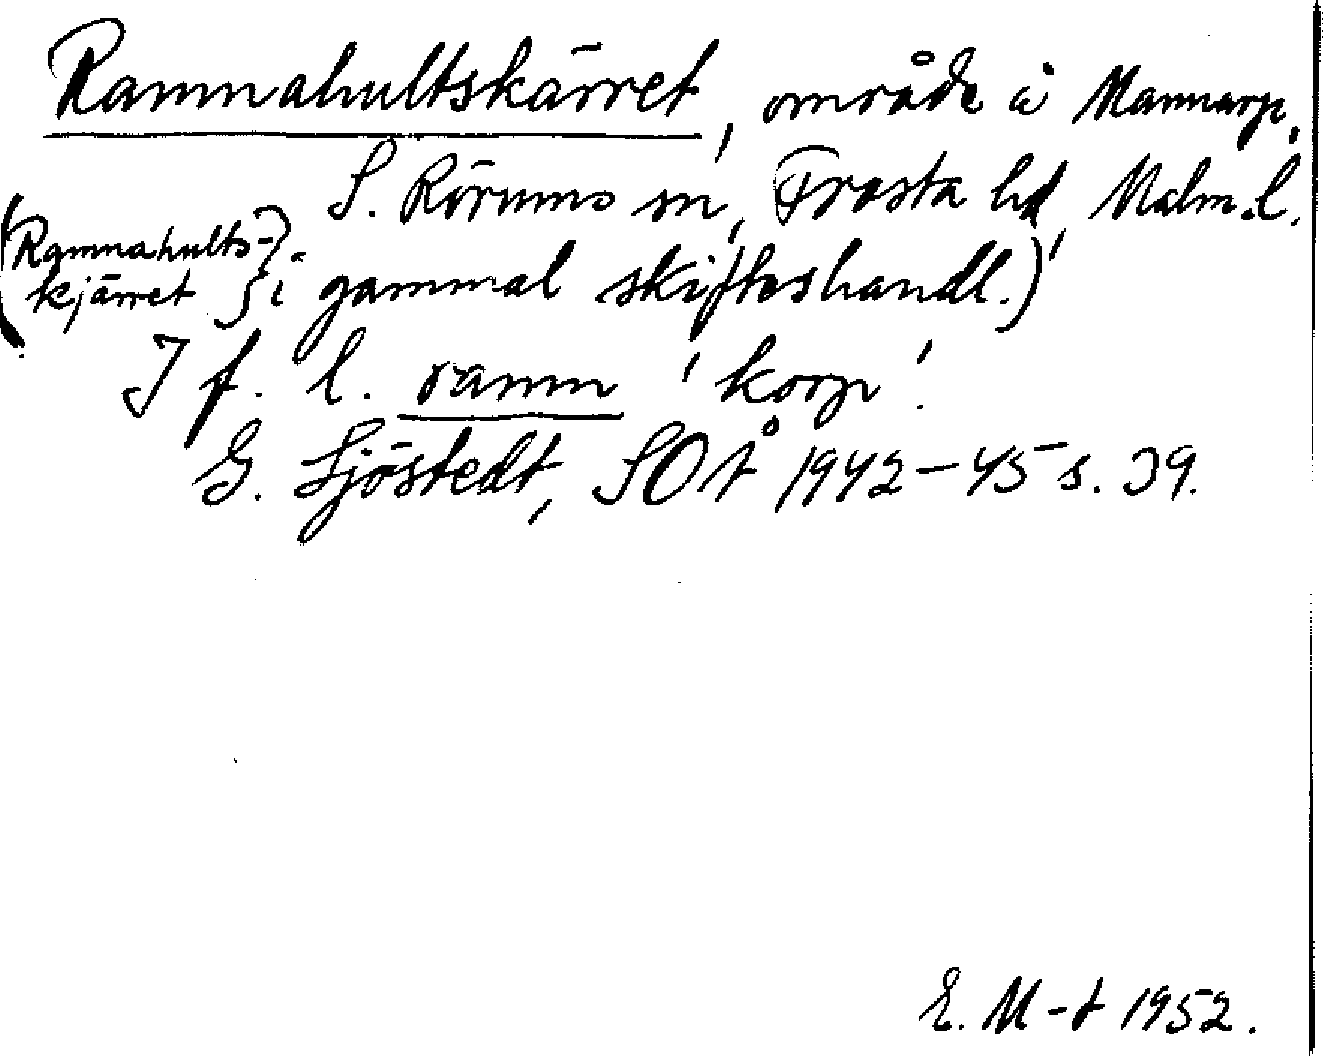 Ramnahultskärret, område å Mannarp,
S. Rörums sn, Frosta hd, Malm.l.
(Ramnahults-
kjärret } i gammal skifteshandl.)
Jf. l. ramn 'korp'.
G. Sjöstedt, SOÅ 1942–45 s. 39.
E. M-t 1952.